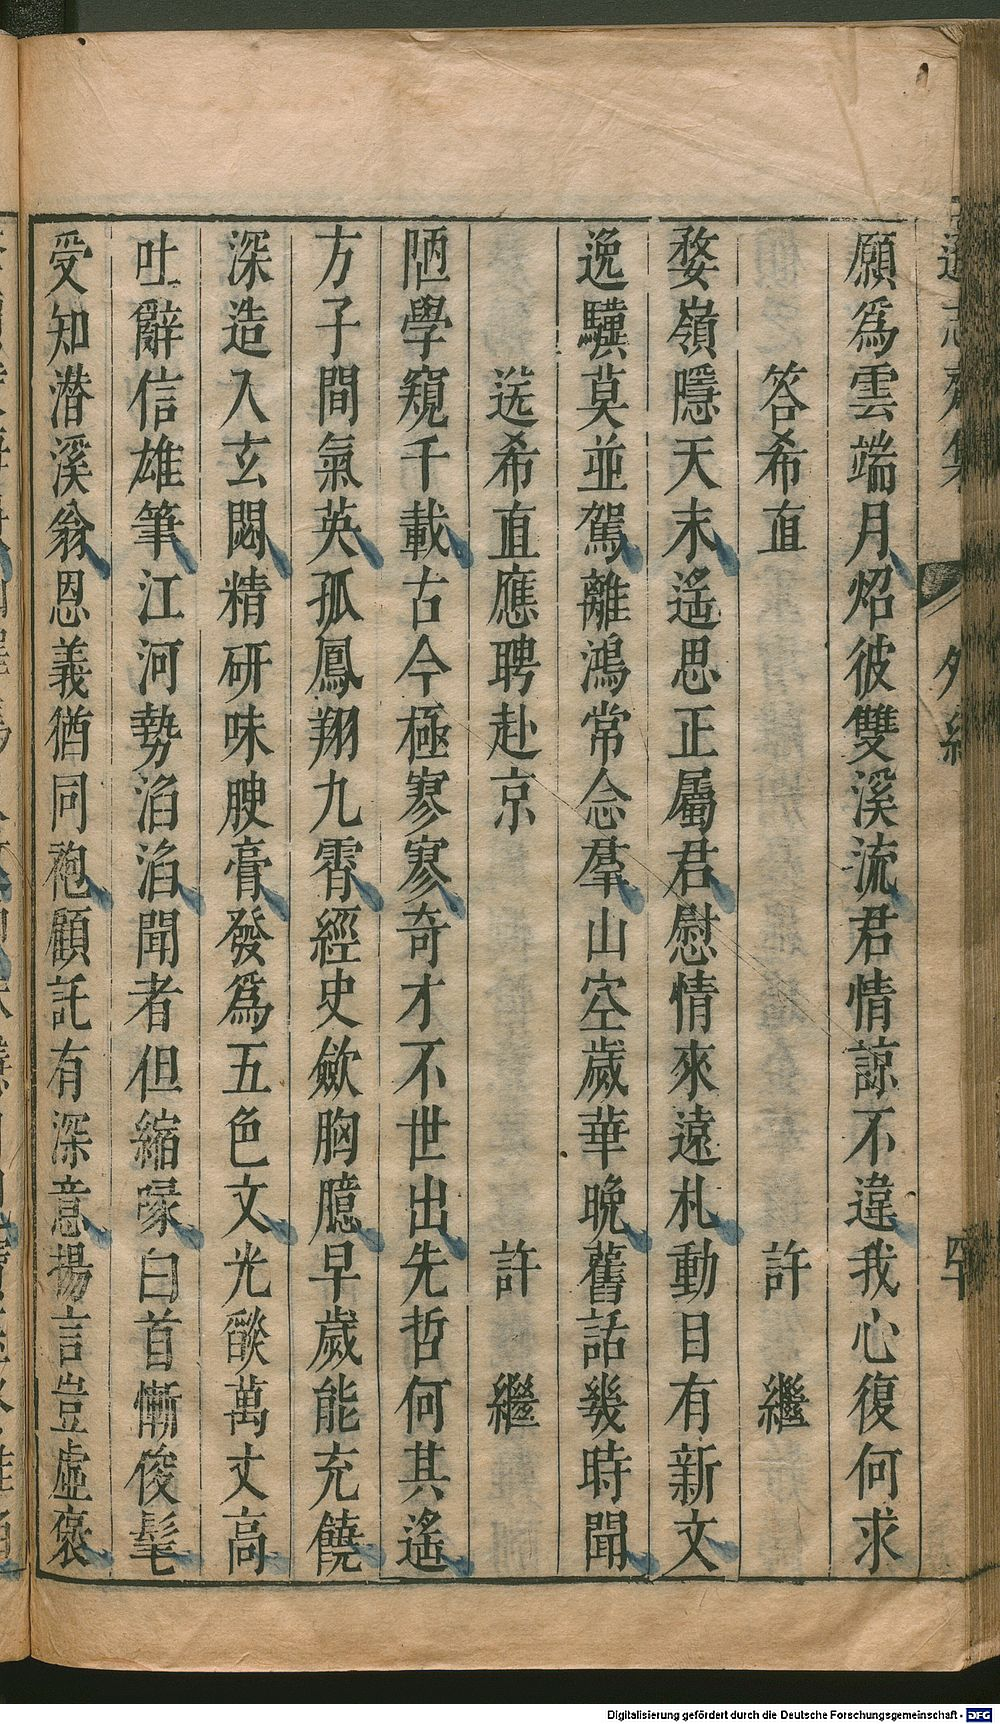 願爲雲端月炤彼雙溪流君情諒不違我心復何求
答希直 許繼
婺嶺隱天末遙思正屬君慰情來遠札動目有新文
逸驥莫並駕離鴻常念羣山空歲華晚舊話幾時聞
送希直應聘赴京 許繼
陋學窺千載古今極寥寥奇才不世出先哲何其遙
方子間氣英孤鳳翔九霄經史歛胸臆早歲能充饒
深造入玄閟精研味腴膏發爲五色文光燄萬丈高
吐辭信雄筆江河勢滔滔聞者但縮喙白首慚俊髦
受知潜溪翁恩義猶同袍顧託有深意揚言豈虛褒
志齋集 外紀
Digitalisierung gefördert durch die Deutsche Forschungsgemeinschaft - DFG